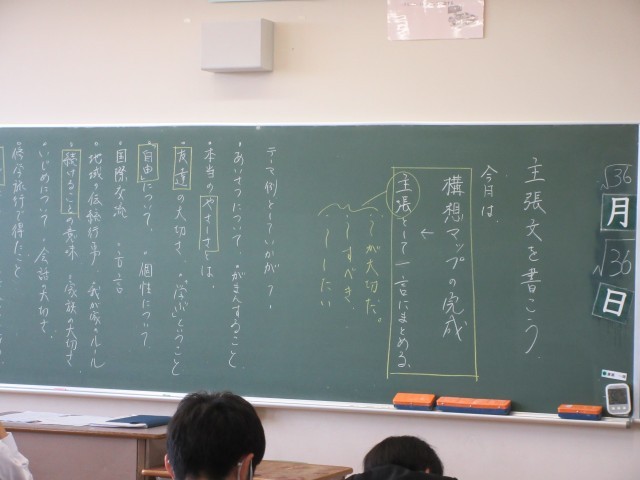 √36
月
√36
日
主張文を書こう。
今日は、
構想マップの完成
↓
主張として一言にまとめる。
〜が大切だ。
〜すべき。
〜したい
テーマ例としていかが？
・あいさつについて ・がまんすること
・本当のやさしさとは、
・友達の大切さ ・「学ぶ」ということ
・「自由」について、 ・個性について
・国際交流 ・方言
・地域の伝統行事 ・我が家のルール
・続けることの意味 ・家族の大切さ
・いじめについて ・会話の大切さ
・修学旅行で得たこと